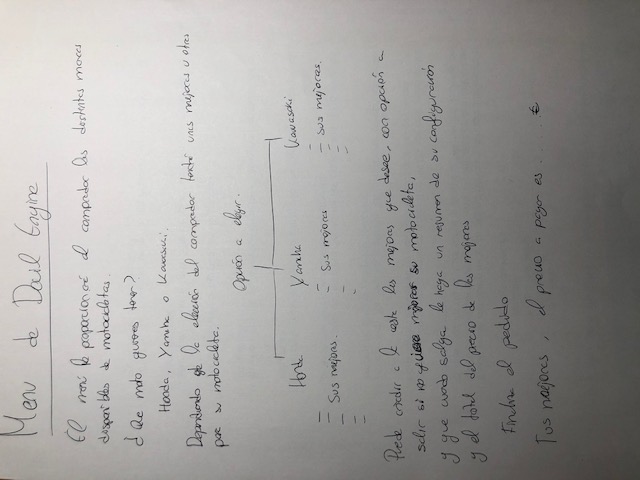 Menu de Davil Engine
El menú le proporcionará al comprador las distintas marcas
disponibles de motocicletas.
¿Que moto quieres tener?
Honda, Yamaha o Kawasaki.
Dependiendo de la elección del comprador tendrá unas mejoras u otras
para su motocicleta.
Opción a elegir.
Honda Yamaha Kawasaki
Sus mejoras. Sus mejoras Sus mejoras.
Puede añadir a la cesta las mejoras que desee, con opción a
salir si no quiere mejorar su motocicleta,
y que cuando salga le haga un resumen de su configuración
y el total del precio de las mejoras
Finaliza el pedido
Tus mejoras, el precio a pagar es ...... €